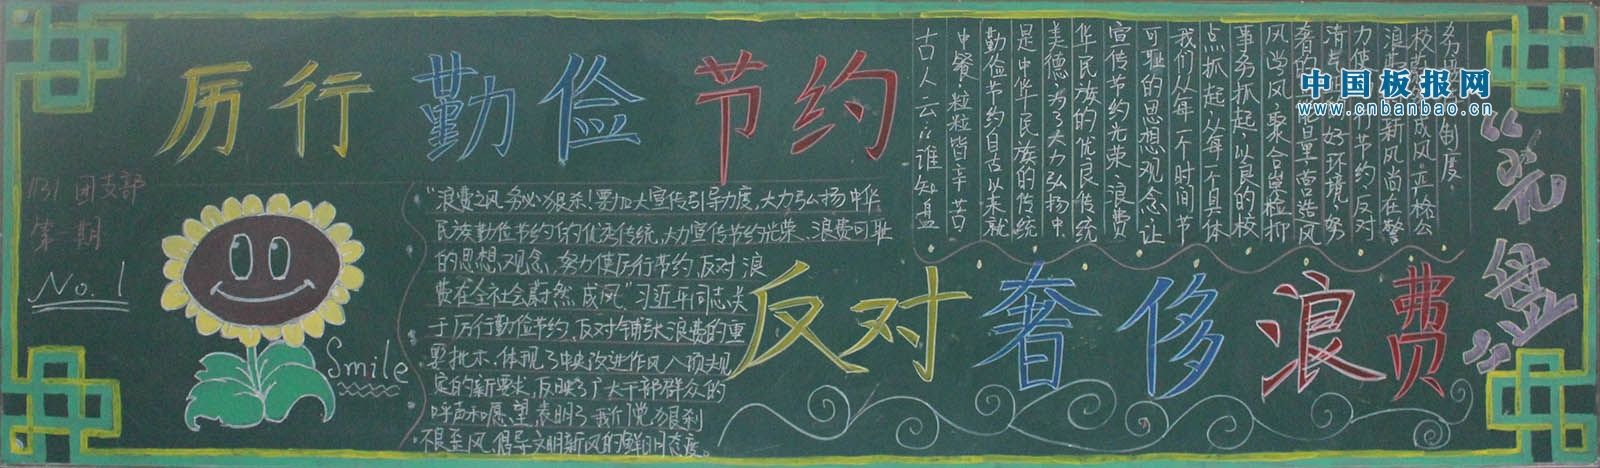 厉行 勤俭 节约
反对奢侈浪费
"光盘"
1131 团支部
第一期
No. 1
Smile
"浪费之风务必狠杀!要加大宣传引导力度,大力弘扬中华
民族勤俭节约的优秀传统,大力宣传节约光荣、浪费可耻
的思想观念,努力使厉行节约、反对浪
费在全社会蔚然成风"习近平同志关
于厉行勤俭节约、反对铺张浪费的重
要批示,体现了中央改进作风八项规
定的新要求,反映了广大干部群众的
呼声和愿望,表明了我们党狠刹
不良歪风、倡导文明新风的鲜明态度。
制度。
风尚风聚合崇检抑
事务抓起,以良的校
点抓起,以每个具体
我们从每一个时间节
可耻的思想观念让
宣传节约光荣、浪费
华民族的优良传统
美德,为了大力弘扬中
是中华民族的传统
勤俭节约自古以来就
中餐,粒粒皆辛苦
古人云:谁知盘
中国板报网
www.cnbanbao.cn